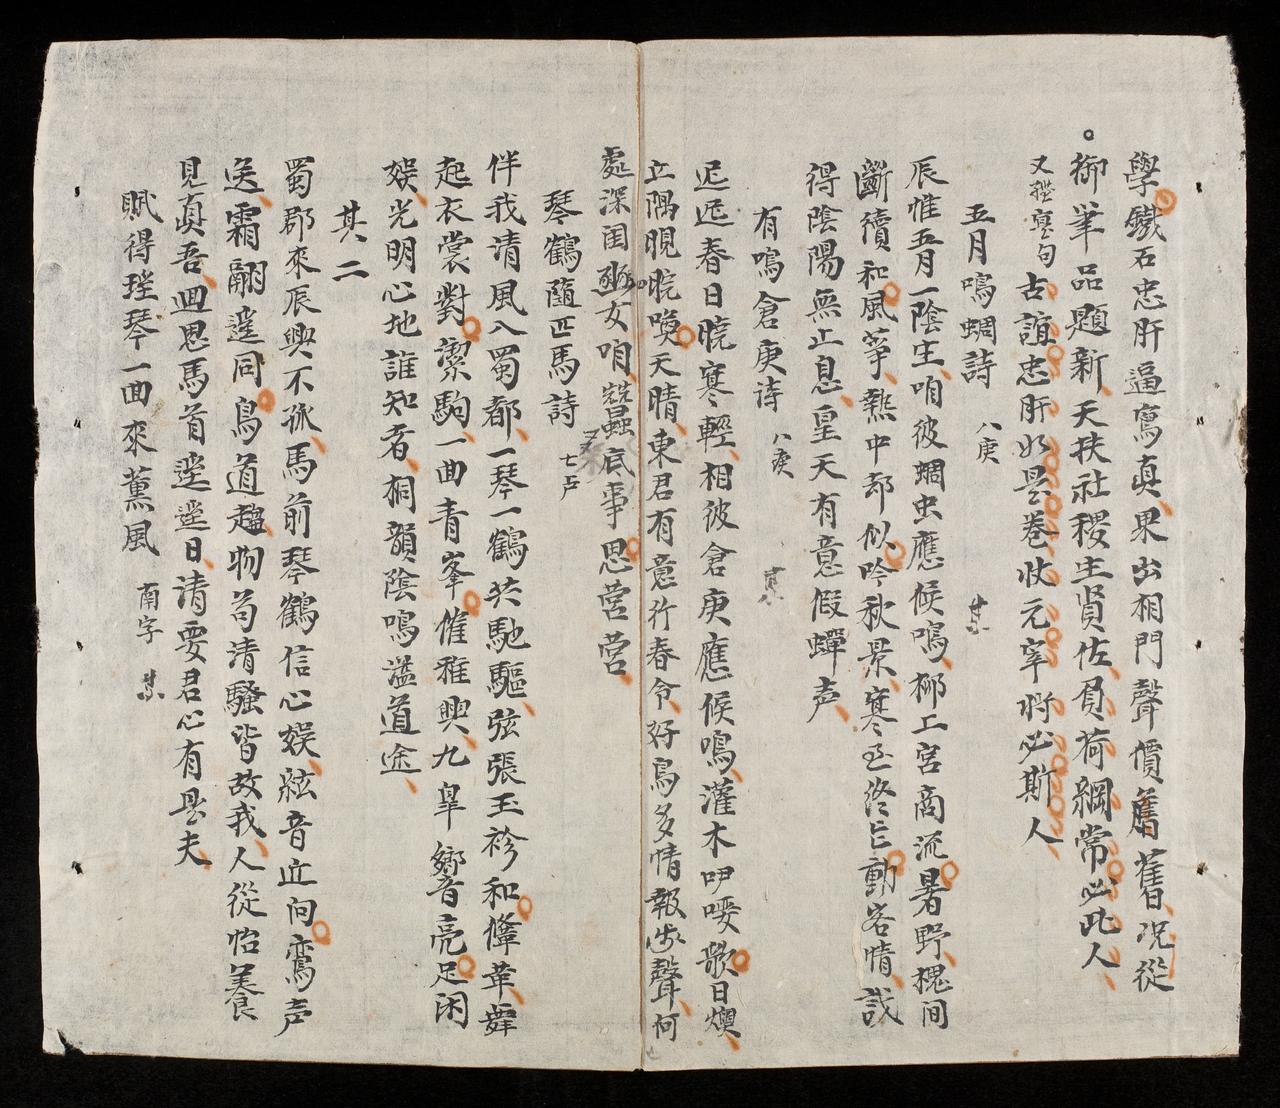 學鐵石忠肝逼寫真果出相門聲價舊況從
御筆品題新天扶社稷生賢佐負荷綱常必此人
又 句 古誼忠肝如是卷狀元宰將必斯人
五月鳴蜩詩 八庚
辰惟五月一陰生咱彼蜩虫應候鳴柳工宮商流暑野槐間
斷續和風箏熱中却似吟秋景寒至終忘動客情哉
得陰陽無止息皇天有意假蟬声
有鳴倉庚诗 八庚
迟迟春日晓寒輕相彼倉庚應候鳴灌木吚嚶歌日燠
立隅睍睆喚天晴東君有意行春令好鳥多情報 聲何
處深闺 女咱 蠶底事思营营
琴鶴隨匹馬詩 七卢
伴我清風入蜀都一琴一鶴共馳驅弦張玉袗和 革舞
起衣裳對潔駒一曲青峯催雅興九皐響亮足闲
娱光明心地誰知者桐韻陰鳴溢道途
其二
蜀郡來辰興不孤馬前琴鶴信心娱絃音近向鸞声
送霜翮遥同鳥道趨物苟清騷皆故我人從怡養
見真吾回思馬首遥遥日清要君心有是夫
賦得瑤琴一曲來薰風 南字